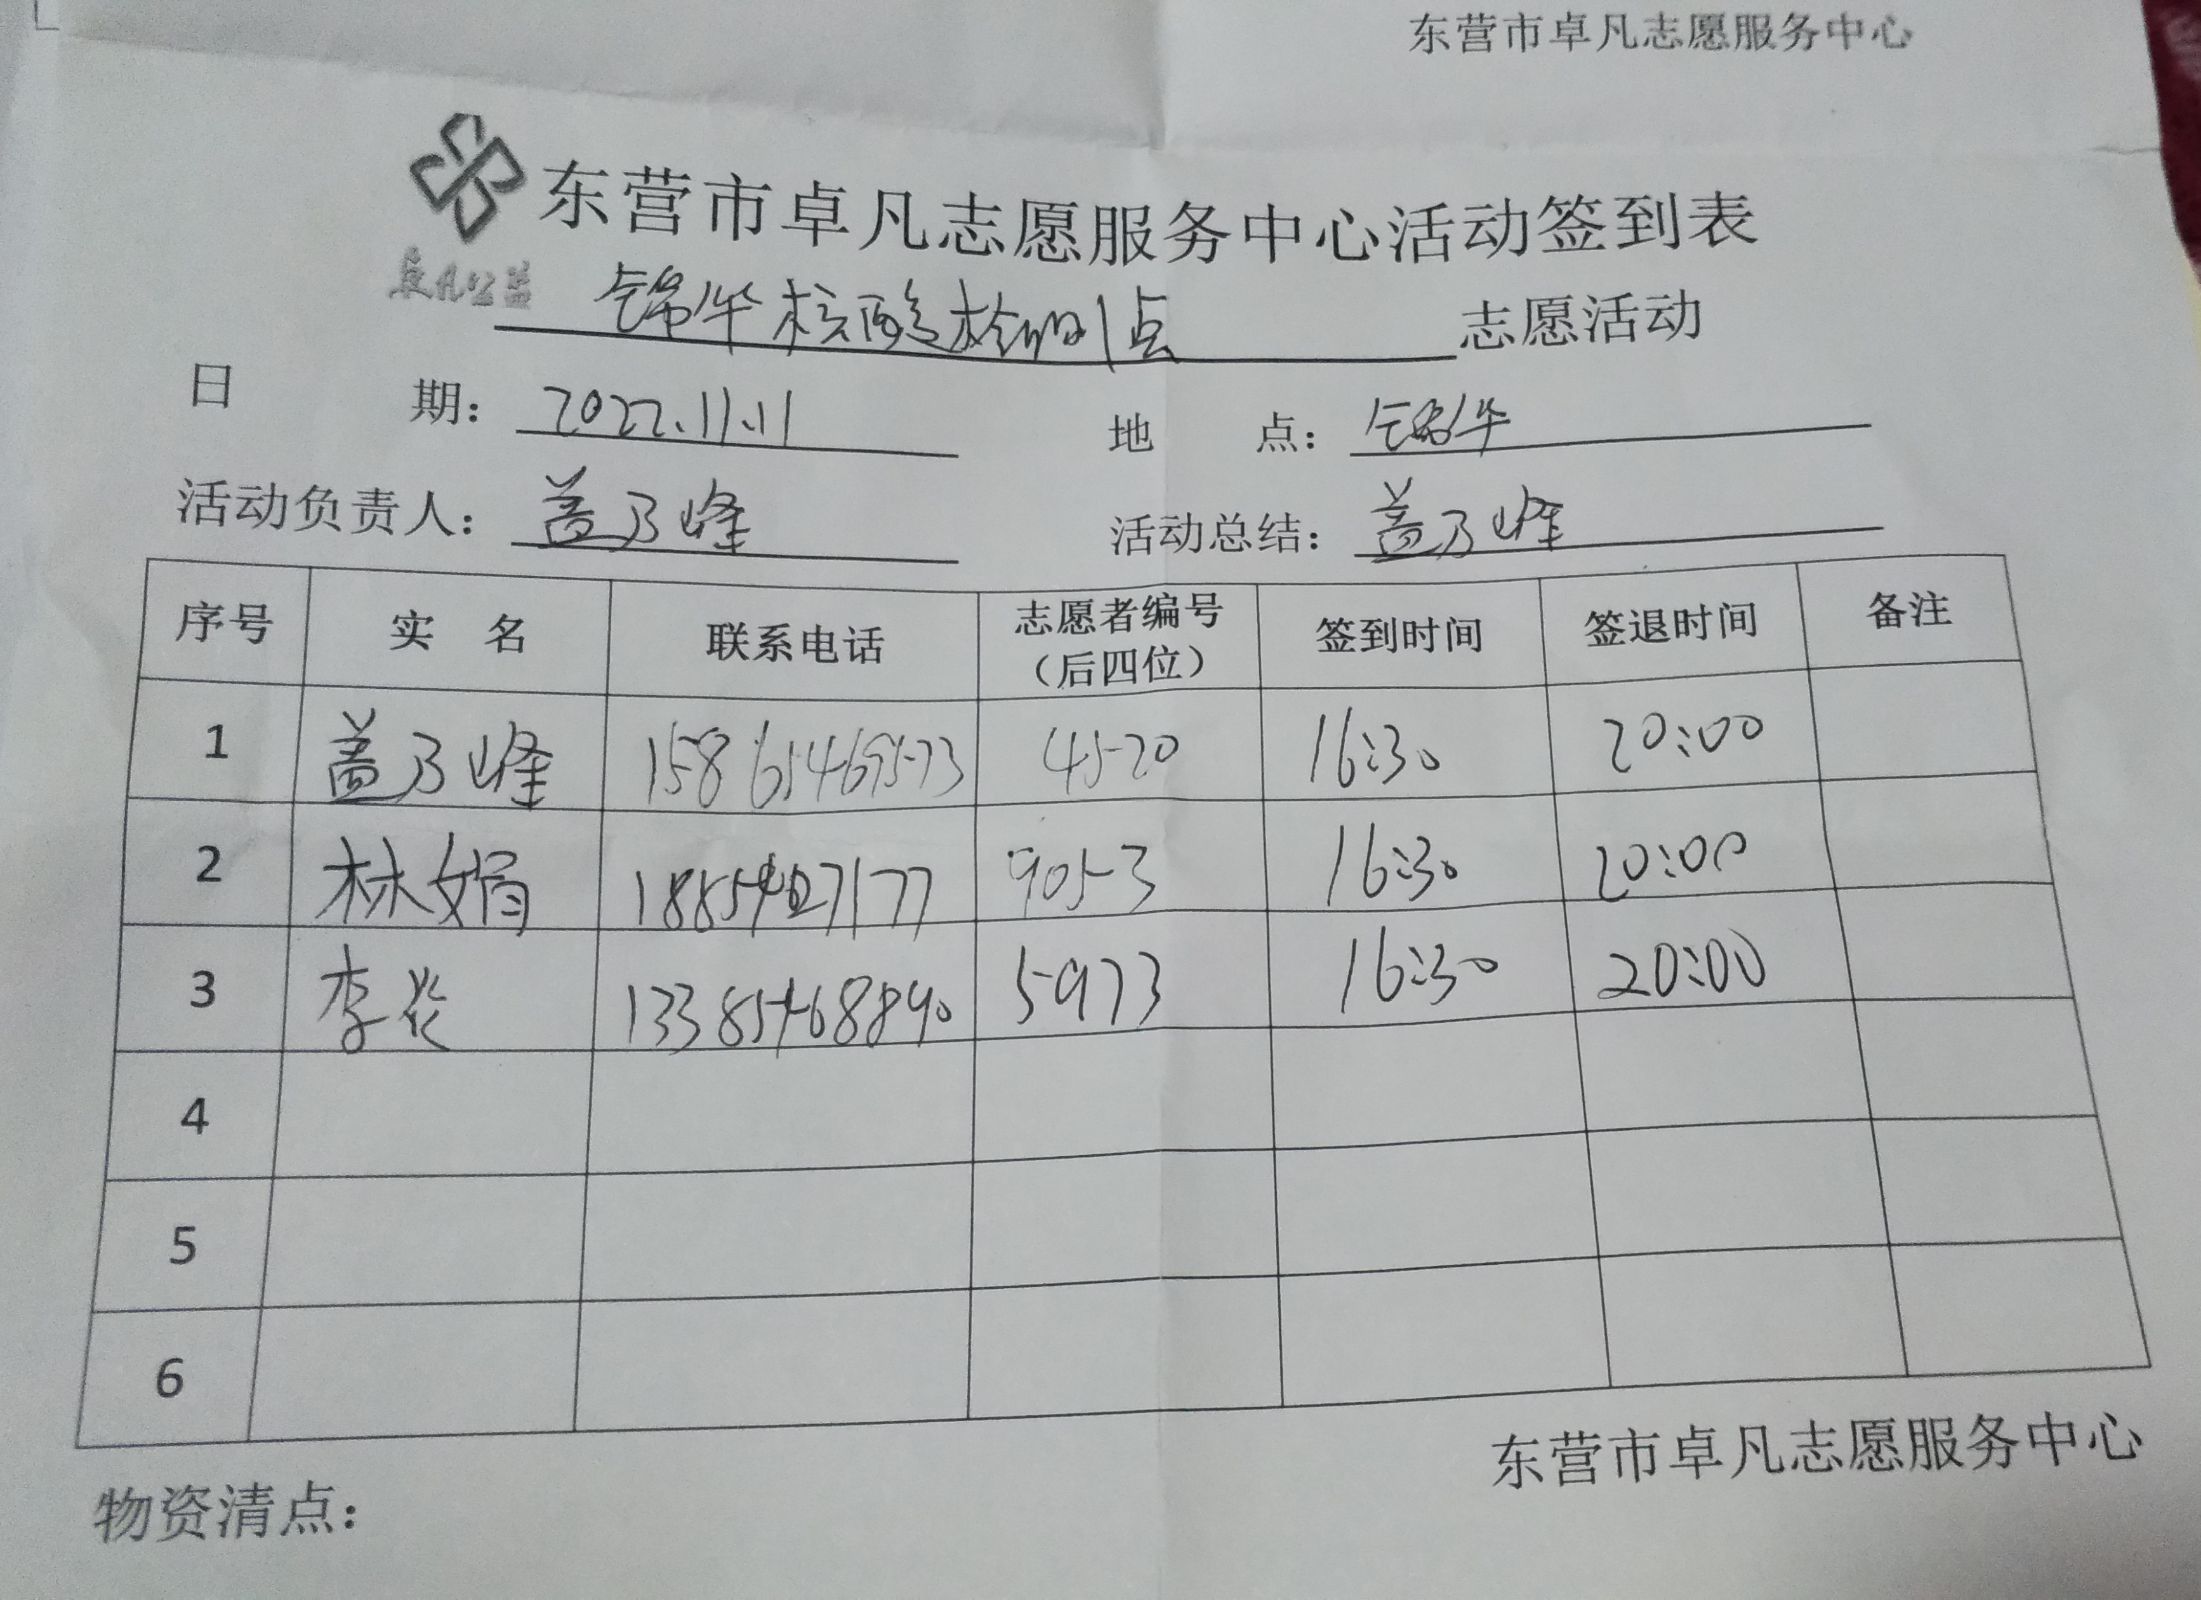 东营市卓凡志愿服务中心
东营市卓凡志愿服务中心活动签到表
卓凡公益
锦华核酸检测点 志愿活动
日 期： 2022.11.11 地 点： 锦华
活动负责人： 盖乃峰 活动总结： 盖乃峰
序号 实 名 联系电话 志愿者编号（后四位） 签到时间 签退时间 备注
1 盖乃峰 15865469573 4520 16:30 20:00
2 林娟 9053 16:30 20:00
3 李 13385468890 5973 16:30 20:00
4
5
6
东营市卓凡志愿服务中心
物资清点：